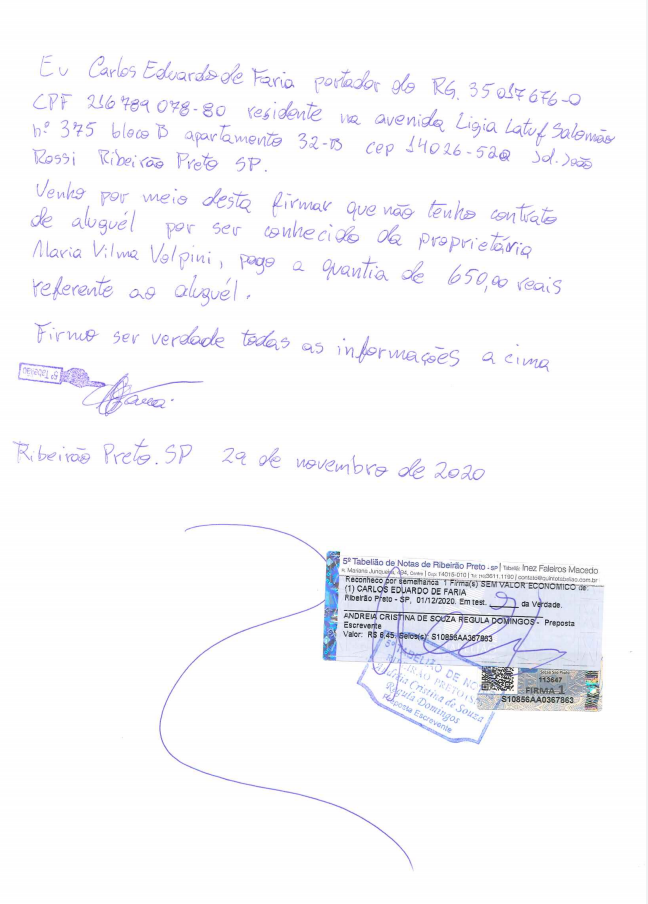 Eu Carlos Eduardo de Faria portador do RG. 35017676-0
CPF 216789078-80 residente na avenida Ligia Latuf Salomão
nº 375 bloco B apartamento 32-B cep 14026-520 Jd. João
Rossi Ribeirão Preto SP.
Venho por meio desta firmar que não tenho contrato
de aluguél por ser conhecido da proprietária
Maria Vilma Volpini, pago a quantia de 650,00 reais
referente ao aluguél.
Firmo ser verdade todas as informações a cima
Ribeirão Preto. SP 29 de novembro de 2020
5º Tabelião de Notas de Ribeirão Preto - SP | Tabeliã: Inez Faleiros Macedo
Av. Mariana Junqueira, 494, Centro | Cep: 14015-010 | Tel: (16)3611.1190 | contato@quintotabeliao.com.br
Reconheço por semelhança 1 Firma(s) SEM VALOR ECONOMICO de:
(1) CARLOS EDUARDO DE FARIA
Ribeirão Preto - SP, 01/12/2020. Em test. da Verdade.
ANDREIA CRISTINA DE SOUZA REGULA DOMINGOS - Preposta
Escrevente
Valor: R$ 6,45. Selo(s): S10856AA0367863
5º TABELIÃO DE NO
RIBEIRÃO PRETO
Andréia Cristina de Souza
Regula Domingos
Preposta Escrevente
113647
FIRMA 1
S10856AA0367863